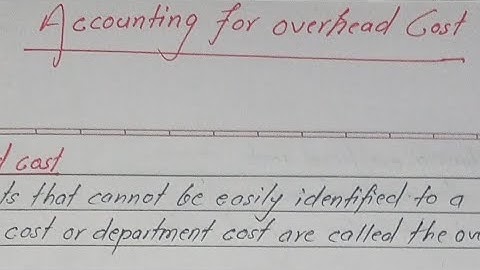 Accounting for overhead Cost
cost
that cannot be easily identified to a
cost or department cost are called the